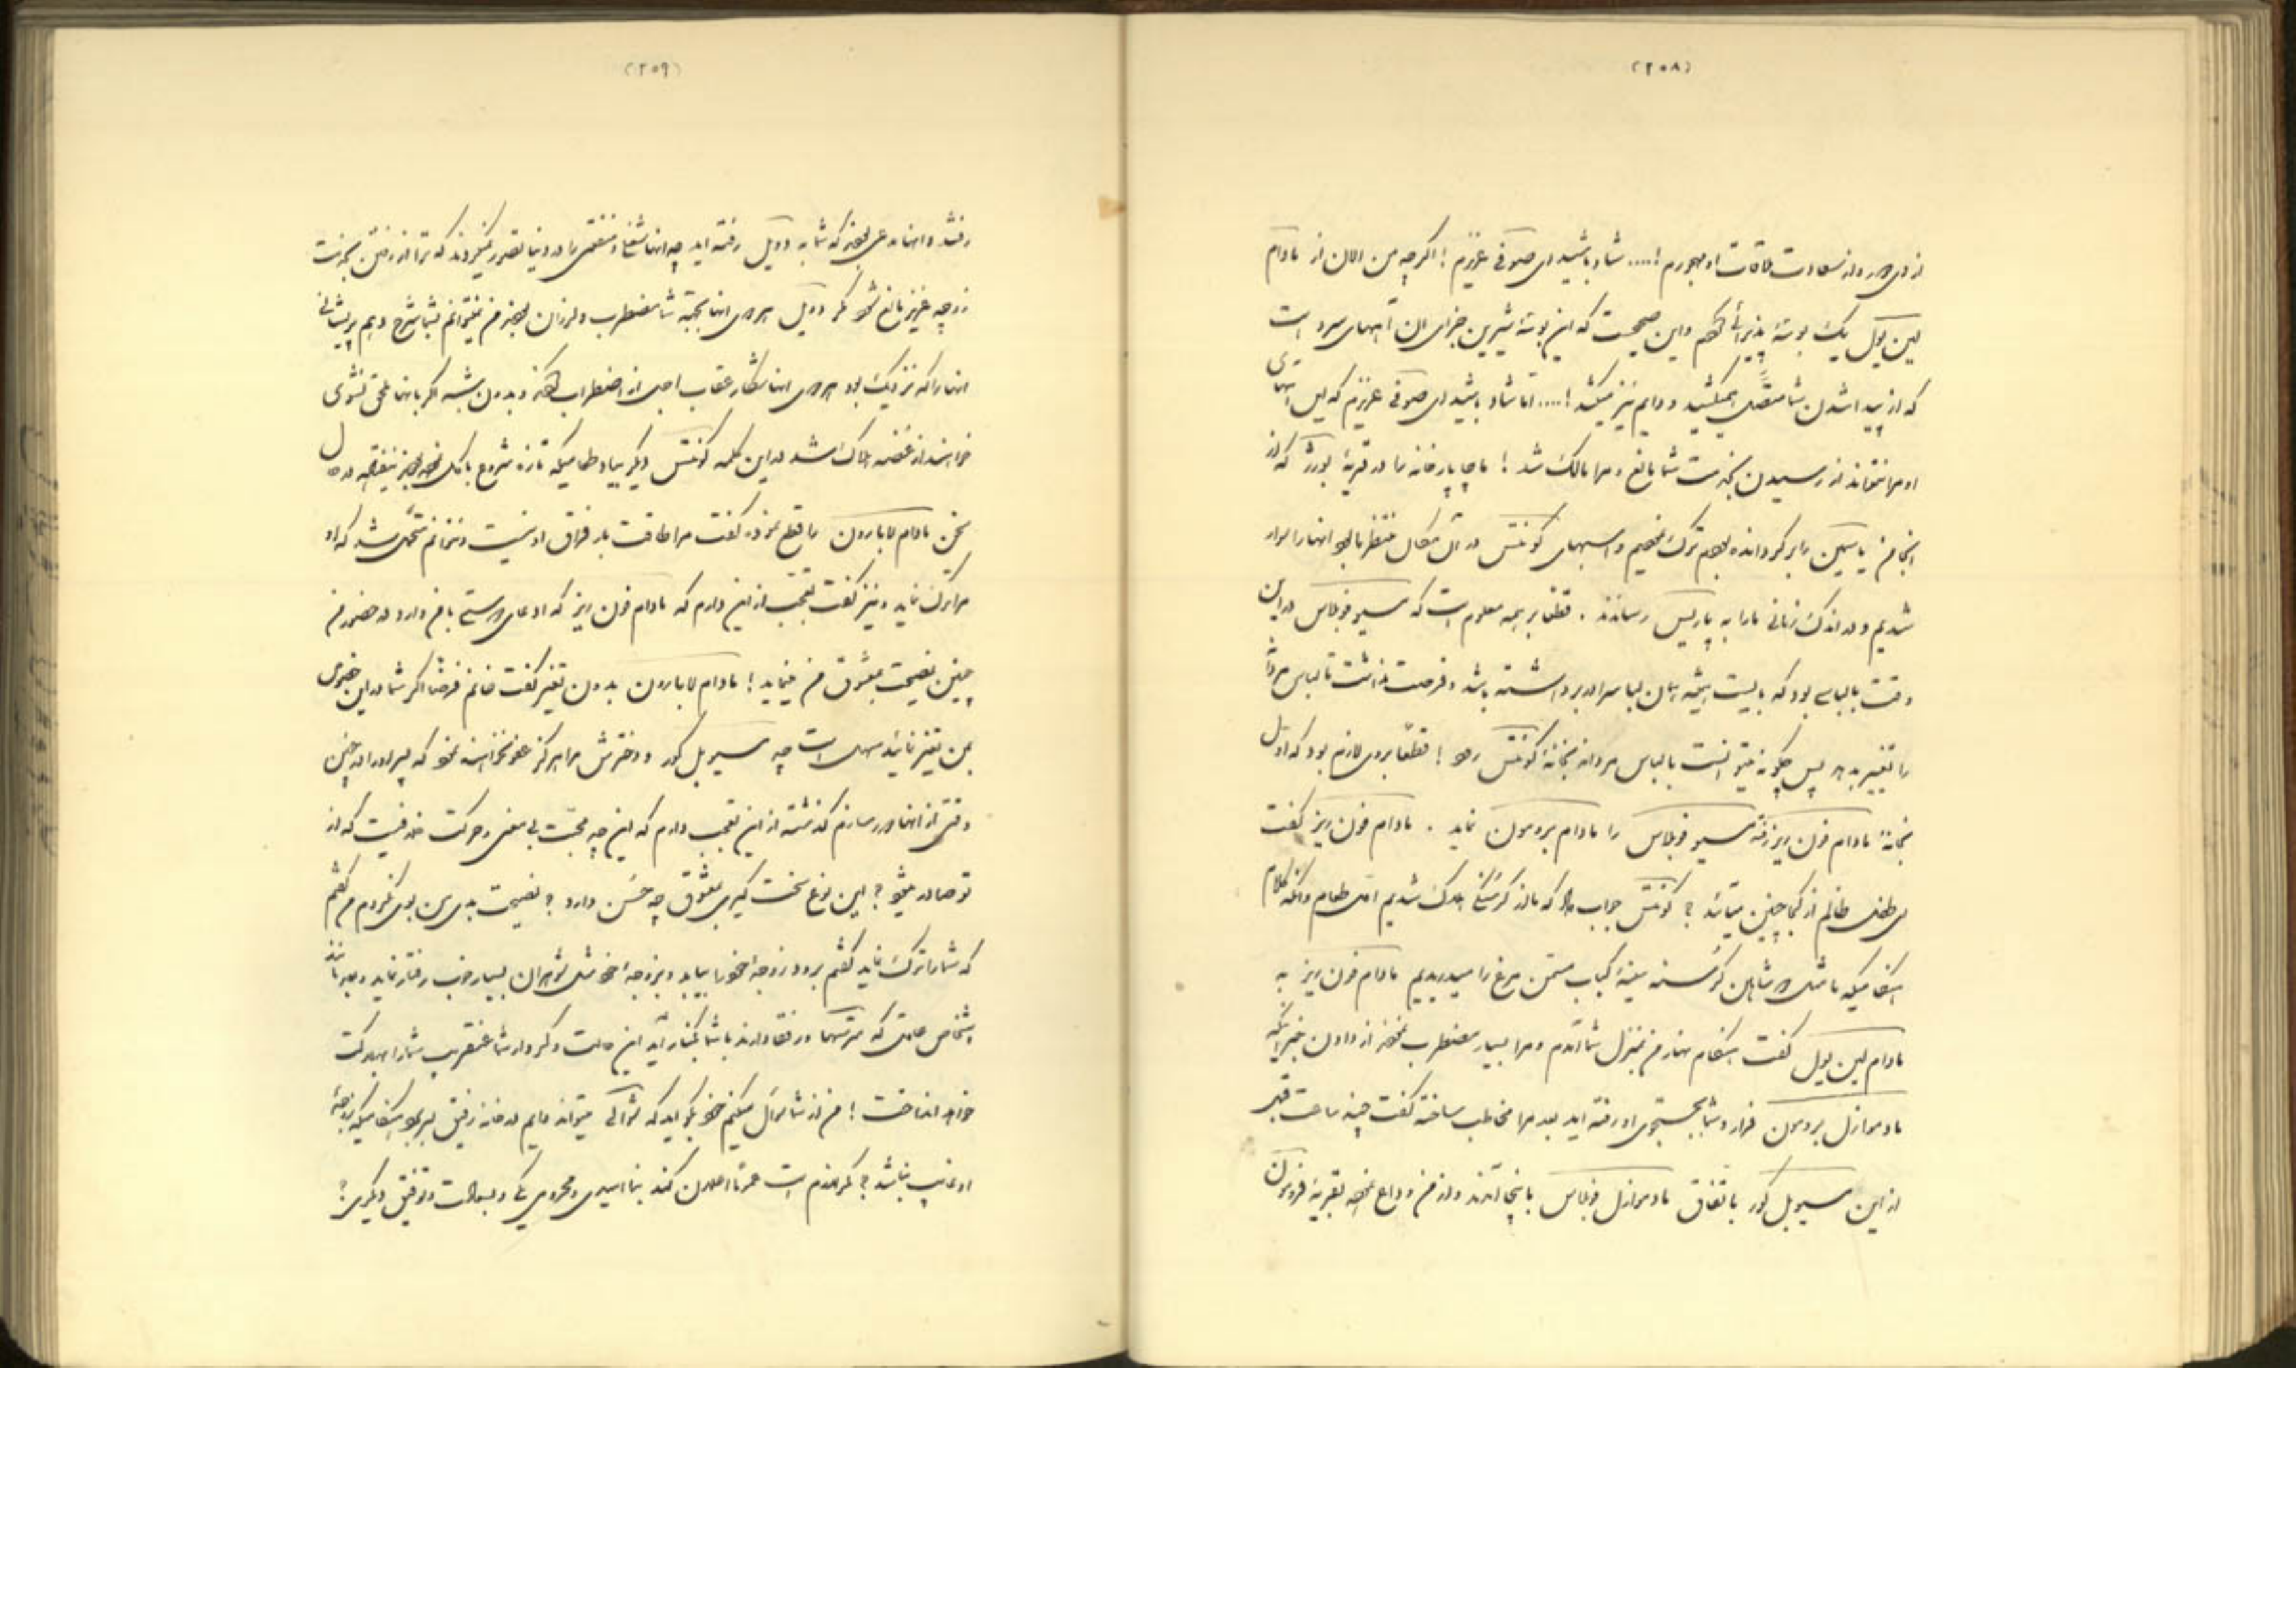 (۲۰۸)
از وی دور و از سعادت ملاقات او مهجورم !.... شاد باشید ای صوفی عزیزم ! اگر چه من الان از مادام
لین یول یک بوسهٔ پذیرائی و این صحیح است که این بوسهٔ شیرین جزای آن آههای سرد است
که از پیدا شدن شما متصل میکشید و دایم نیز میکشد !.... اما شاد باشید ای صوفی عزیزم که
او مرا نتواند از رسیدن بخدمت شما مانع و مرا مالک شد ! ما چاپارخانه را در قریهٔ بورژ که از
انجا من را برگردانده بودم ترک نمودیم و اسبهای کونتس در آن مکان منتظر ما بود انها را سوار
شدیم و در اندک زمانی ما را به پاریس رساندند . قطعا بر همه معلوم است که مسیو فوبلاس در این
وقت بالباسی بود که بایست همیشه همان لباس را در بر داشته باشد و فرصت نداشت تا لباس
را تغییر بدهد پس چگونه میتوانست با لباس مردانه بخانهٔ کونتس رود ! قطعا بروی لازم بود که اول
بخانهٔ مادام فون ریز رفته مسیو فوبلاس را مادام برومون نماید . مادام فون ریز گفت
ای طفل ظالم از کجا چنین میآئید ؟ کونتس جواب داد که ما از گرسنگی هلاک شدیم اول طعام وانگه کلام
هنگامیکه ما مثل شاهین گرسنه سینهٔ کباب مرغ را میدریدیم مادام فون ریز به
مادام لین یول گفت هنگام نهار من بمنزل شما آمدم و مرا بسیار مضطرب نمودند از دادن خبر اینکه
مادموازل برومون فرار و شما بجستجوی او رفته اید بعد مرا مخاطب ساخته گفت چند ساعت قبل
از این مسیو بل کور باتفاق مادموازل فوبلاس باینجا آمدند و از من وداع نموده بقریهٔ فرومون
(۲۰۹)
رفتند و انها مدعی بودند که شما به دوئل رفته اید چه انها شغل و را در دنیا تصور نمیکردند که ترا از رفتن بخدمت
زوجه عزیز مانع شود مگر دوئل هر دوی انها بجهة شما مضطرب و لرزان بودند من نمیتوانم بشما شرح دهم پریشانی
انها را که نزدیک بود هر دوی انها شکار عقاب اجل از اضطراب و بدون شبهه اگر بانها ملحق نشوی
خواهند از غصه هلاک شد در این کلمه کونتس دیگر بیاد طعامیکه تازه شروع باکل نموده بود نیفتاده در حال
سخن مادام لابارون را قطع نموده گفت مرا طاقت بار فراق او نیست و نتوانم متحمل شد که او
مرا ترک نماید و نیز گفت تعجب از این دارم که مادام فون ریز که ادعای دوستی با من دارد در حضور من
چنین نصیحت بمعشوق من مینماید ! مادام لابارون بدون تغیر گفت خانم فرضا اگر شما در این خصوص
بمن تغیر نمائید سهل است چه مسیو بل کور و دخترش مرا هرگز عفو نخواهند نمود که پسر را در چنین
وقتی از انها دور سازم گذشته از این تعجب دارم که این چه محبت بی معنی و حرکت خنکیست که از
تو صادر میشود ؟ این نوع سخت گیری بمعشوق چه حسن دارد ؟ نصیحت بدی من بوی نکردم من گفتم
که شما را ترک نماید گفتم برود زوجهٔ خود را بیابد و بزوجهٔ خود مثل شوهران بسیار خوب رفتار نماید و بعد مانند
اشخاص عاقل که مترسها و رفقا دارند با شما بکنار آید این حالت و کردار شما عنقریب شما را بهلاکت
خواهد انداخت ! من از شما سؤال میکنم خود بگوئید که شوالی میتواند دایم در خانه رفیق بسر برد هنگامیکه زوجهٔ
او غایب باشد ؟ مگر لازم است عمرتا اعلان کند بنا امیدی و محرومی یکی و بسعادت و توفیق دیگری ؟